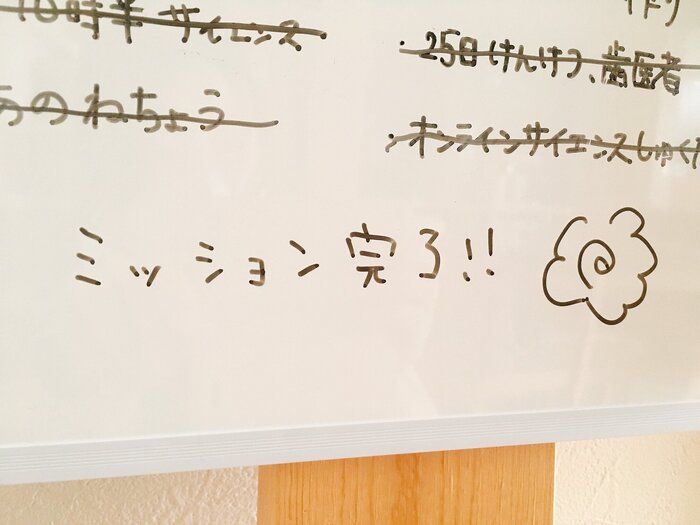 10時半 サイエンス
あのねちょう
・25日 けんけつ、歯医者
・オンラインサイエンスしゅくだ
ミッション完了!!